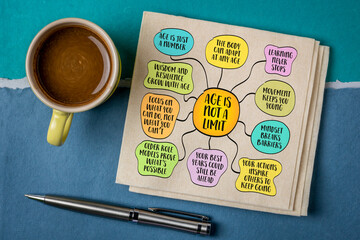 AGE IS JUST
A NUMBER
THE BODY
CAN ADAPT
AT ANY AGE
LEARNING
NEVER
STOPS
WISDOM AND
RESILIENCE
GROW WITH
AGE
MOVEMENT
KEEPS YOU
YOUNG
FOCUS ON
WHAT YOU
CAN DO,
NOT WHAT
YOU CAN'T
AGE IS
NOT A
LIMIT
MINDSET
BREAKS
BARRIERS
OLDER ROLE
MODELS PROVE
WHAT'S
POSSIBLE
YOUR BEST
YEARS COULD
STILL BE
AHEAD
YOUR ACTIONS
INSPIRE
OTHERS TO
KEEP GOING